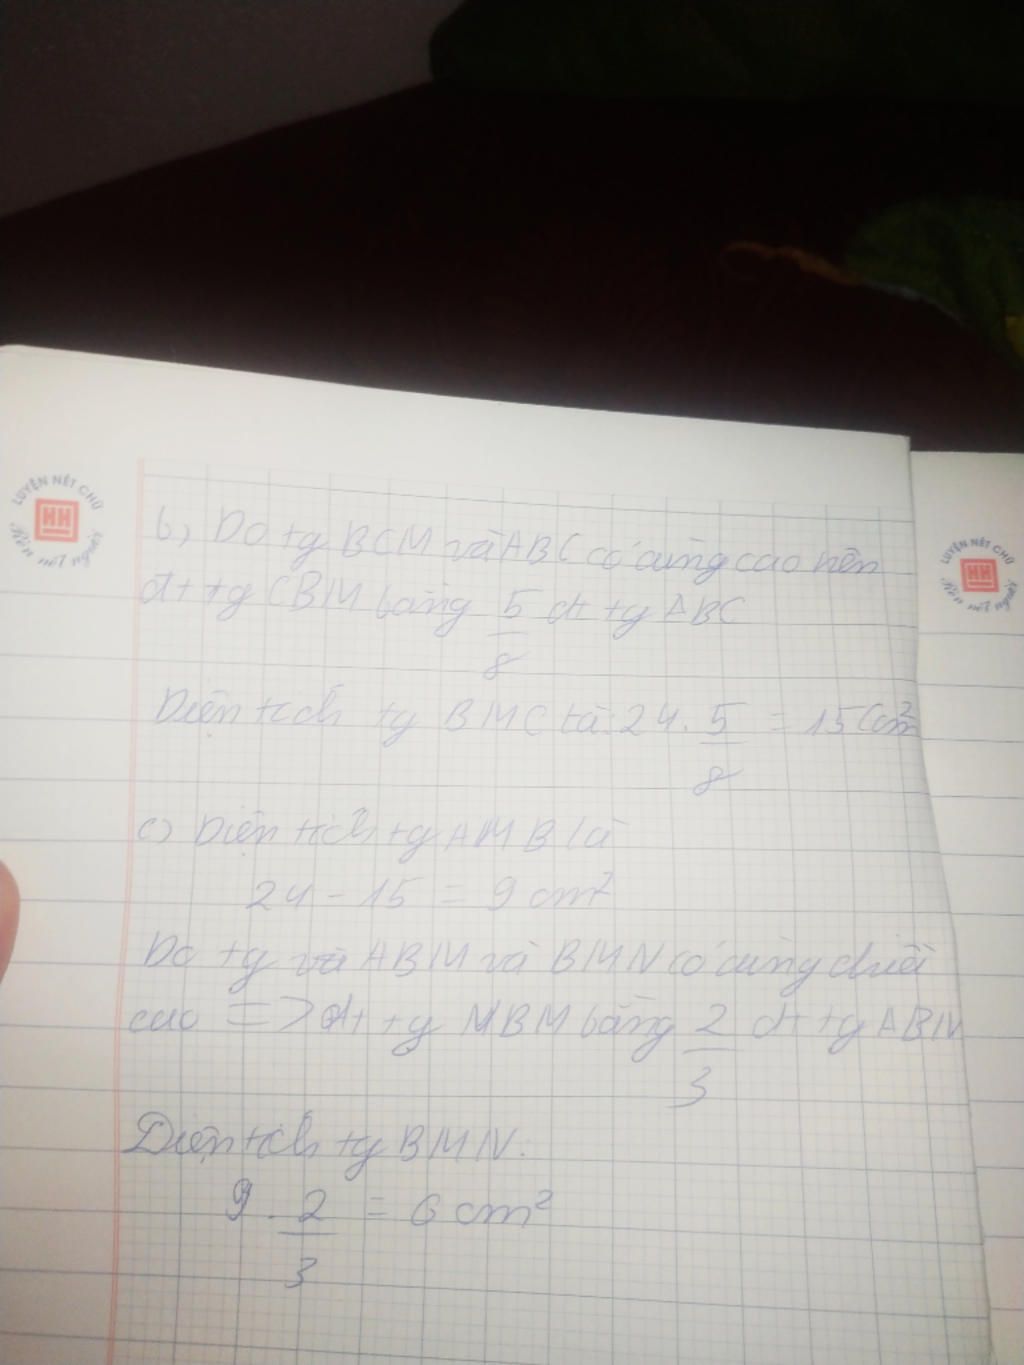 LUYỆN NÉT CHỮ
HH
Rèn nết người
LUYỆN NÉT CHỮ
HH
Rèn nết người
b) Do tg BCM và ABC có cùng cao nên
dt tg CBM bằng 5/8 dt tg ABC
Diện tích tg BMC là: 24 . 5/8 = 15 (cm²
c) Diện tích tg AMB là
24 - 15 = 9 cm²
Do tg và ABM và BMN có cùng chiều
cao => dt tg NBM bằng 2/3 dt tg ABM
Diện tích tg BMN:
9 . 2/3 = 6 cm²